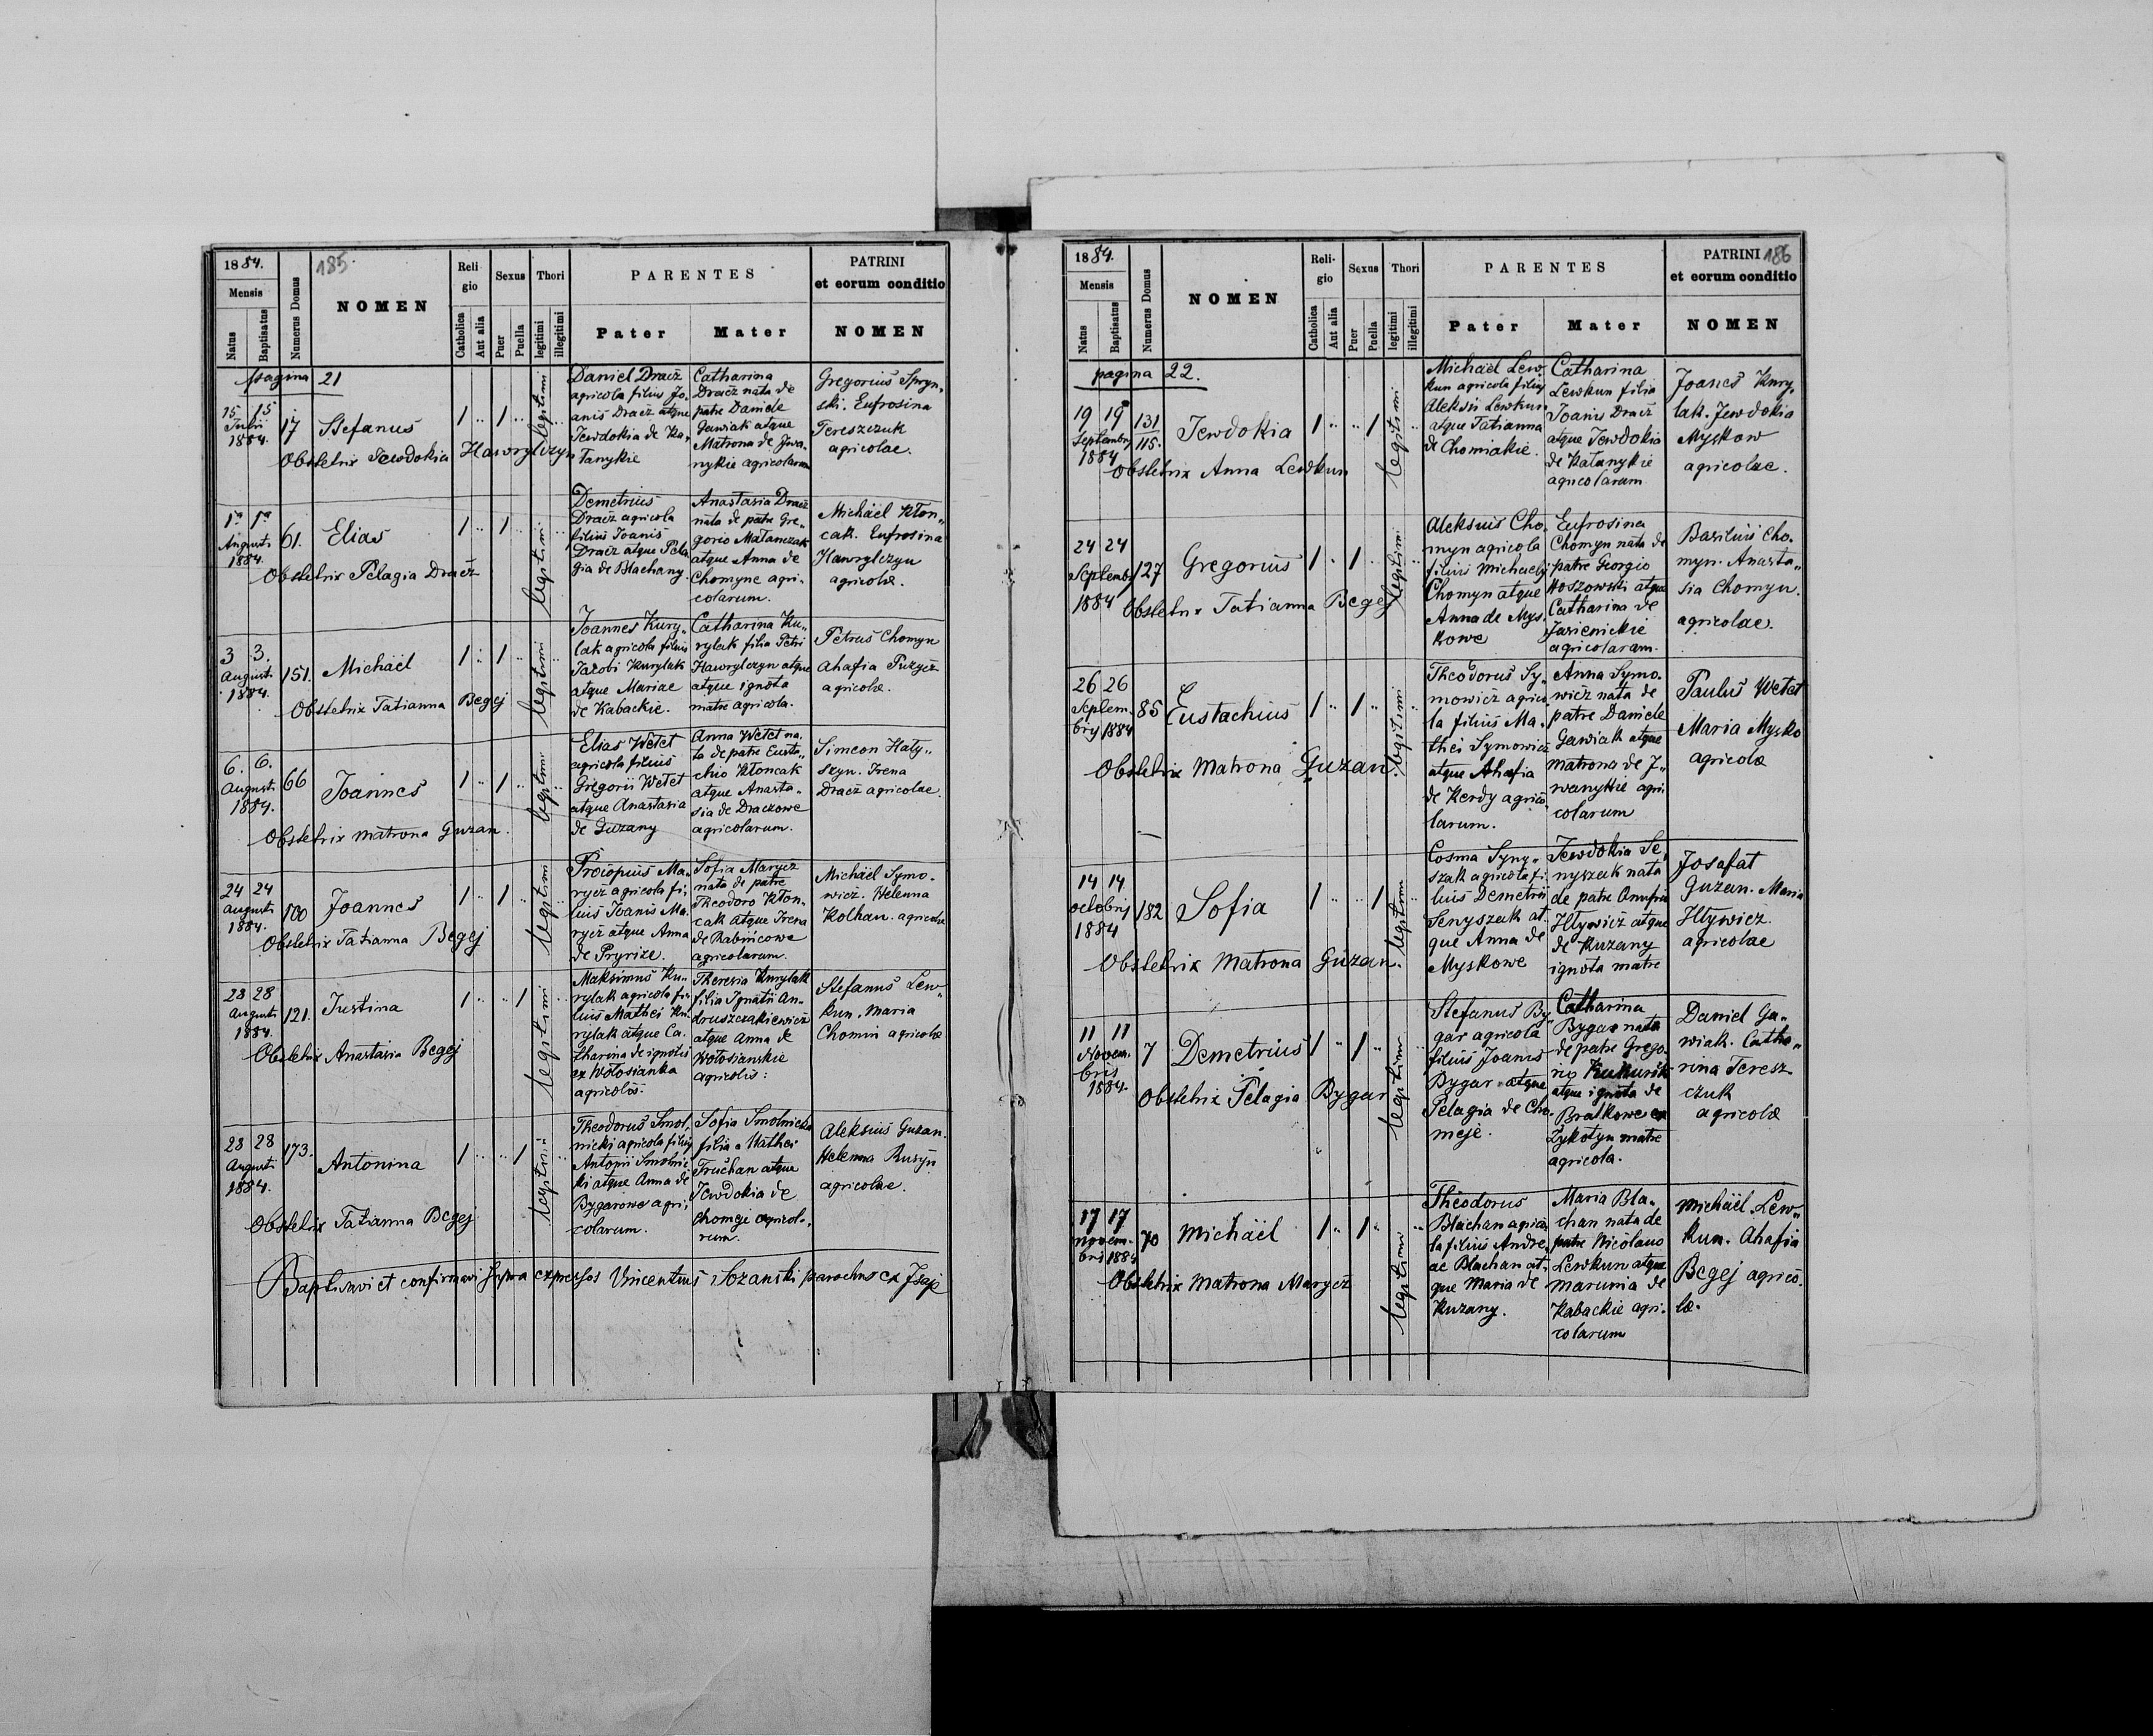 1884.
185.
Mensis
Natus
Baptisatus
Numerus Domus
NOMEN
Reli
gio
Catholica
Aut alia
Sexus
Puer
Puella
Thori
legitimi
illegitimi
PARENTES
Pater
Mater
PATRINI
et eorum conditio
NOMEN
pagina 21
15 15
Julii
1884.
17
Stefanus
1 .. 1 ..
legitimi
Obstetrix Jewdokia Hawrylczyn
Daniel Dracz
agricola filius Jo„
anis Dracz atque
Jewdokia de Ka„
Tanykie
Catharina
Dracz nata de
patre Daniele
Gawiak atque
Matrona de Jwa„
nykie agricolarum
Gregorius Spryn„
ski. Eufrosina
Tereszczuk
agricolae.
1ª 1ª
Augusti
1884.
61.
Elias
1 .. 1 ..
legitimi
Obstetrix Pelagia Dracz
Demetrius
Dracz agricola
filius Joanis
Dracz atque Pela„
gia de Blachany.
Anastasia Dracz
nata de patre Gre„
gorio Matanczak
atque Anna de
Chomyne agri„
colarum.
Michäel Kłon„
cak. Eufrosina
Hawrylczyn
agricolæ.
3 3.
Augusti
1884.
151.
Michäel
1 .. 1 ..
legitimi
Obstetrix Tatianna Begej
Joannes Kury„
lak agricola filius
Jacobi Kurylak
atque Mariae
de Kabackie.
Catharina Ku„
rylak filia Petri
Hawrylczyn atque
atque ignota
matre agricola.
Petrus Chomyn
Ahafia Puzycz
agricolæ.
6. 6.
Augusti
1884.
66
Joannes
1 .. 1 ..
legitimi
Obstetrix Matrona Guzan.
Elias Wetet
agricola filius
Gregorii Wetet
atque Anastasia
de Guzany
Anna Wetet na„
ta de patre Eusta„
chio Kłoncak
atque Anasta„
sia de Draczowe
agricolarum.
Simeon Haty„
szyn. Irena
Dracz agricolae.
24 24
Augusti
1884.
100
Joannes
1 .. 1 ..
legitimi
Obstetrix Tatianna Begej
Procopius Ma„
rycz agricola fi„
lius Joanis Ma„
rycz atque Anna
de Pryrize.
Sofia Marycz
nata de patre
Theodoro Kłon„
cak atque Irena
de Rabińcowe
agricolarum.
Michäel Symo„
wicz. Helenna
Kolhan. agricolæ
28 28
Augusti
1884.
121.
Justina
1 .. .. 1
legitimi
Obstetrix Anastasia Begej
Maksimus Ku„
rylak agricola fi„
lius Mathei Ku„
rylak atque Ca„
tharina de ignotis
ex Wołosianka
agricolis.
Theresia Kurylak
filia Ignatii An„
druszczakiewicz
atque Anna de
Wołosianskie
agricolis:
Stefanus Lew„
kun. Maria
Chomin agricolæ
28 28
Augusti
1884.
173.
Antonina
1 .. .. 1
legitimi
Obstetrix Tatianna Begej
Theodorus Smol„
nicki agricola filius
Antonii Smolnic„
ki atque Anna de
Bygarowe agri„
colarum.
Sofia Smolnicka
filia Mathei
Fruchan atque
Jewdokia de
Chomeje agricol„
rum.
Aleksius Guzan.
Helenna Rusyn
agricolae.
Baptisavi et confirmavi supra expressos Vincentius Sozanski parochus ex Isaje
1884.
Mensis
Natus
Baptisatus
Numerus Domus
NOMEN
Reli-
gio
Catholica
Aut alia
Sexus
Puer
Puella
Thori
legitimi
illegitimi
PARENTES
Pater
Mater
PATRINI 186
et eorum conditio
NOMEN
pagina 22.
19 19
Septembrij
1884
131
115.
Jewdokia
1 .. .. 1
legitimi
Obstetrix Anna Lewkun
Michäel Lew„
kun agricola filius
Aleksii Lewkun
atque Tatianna
de Chomiakie.
Catharina
Lewkun filia
Joanis Dracz
atque Jewdokia
de Katanykie
agricolarum
Joanes Kury„
lak. Jewdokia
Myskow
agricolae.
24 24
Septembrij
1884
127
Gregorius
1 .. 1
legitimi
Obstetrix Tatianna Begej
Aleksius Cho„
myn agricola
filius Michaelis
Chomyn atque
Anna de Mys„
kowe
Eufrosina
Chomyn nata de
patre Georgio
Woszowski atque
Catharina de
Jasienickie
agricolarum.
Basilius Cho„
myn. Anasta„
sia Chomyn.
agricolae.
26 26
Septem„
brij 1884
85
Eustachius
1 .. 1 ..
legitimi
Obstetrix Matrona Guzan
Theodorus Sy„
mowicz agrico„
la filius Ma„
thei Symowicz
atque Ahafia
de Kerdy agrico„
larum.
Anna Symo„
wicz nata de
patre Daniele
Gawiak atque
Matrona de J„
wanykie agri„
colarum
Paulus Wetet
Maria Mysko
agricolæ
14 14
octobrij
1884
182
Sofia
1 .. .. 1
legitimi
Obstetrix Matrona Guzan.
Cosma Syny„
szak agricola fi„
lius Demetrii
Senyszak at„
que Anna de
Myskowe
Jewdokia Se„
nyszak nata
de patre Onufrio
Hływicz atque
de Kuzany
ignota matre
Josafat
Guzan. Maria
Hływicz
agricolae
11 11
Novem„
bris
1884.
7
Demetrius
1 .. 1 ..
legitimi
Obstetrix Pelagia Bygar
Stefanus By„
gar agricola
filius Joanis
Bygar atque
Pelagia de Cho„
meje.
Catharina
Bygar nata
de patre Grego„
rio Kukurik
atque ignota de
Bratkowe ex
Zykotyn matre
agricola.
Daniel Ga„
wiak. Catha„
rina Teresz„
czuk
agricolæ
17 17
Novem„
bris 1884
70
Michäel
1 .. 1 ..
legitimi
Obstetrix Matrona Marycz
Theodorus
Blachan agrico„
la filius Andre„
ae Blachan at„
que Maria de
Kuzany.
Maria Bla„
chan nata de
patre Nicolauo
Lewkun atque
Marunia de
Kabackie agri„
colarum
Michäel Lew„
kun. Ahafia
Begej agrico„
læ.